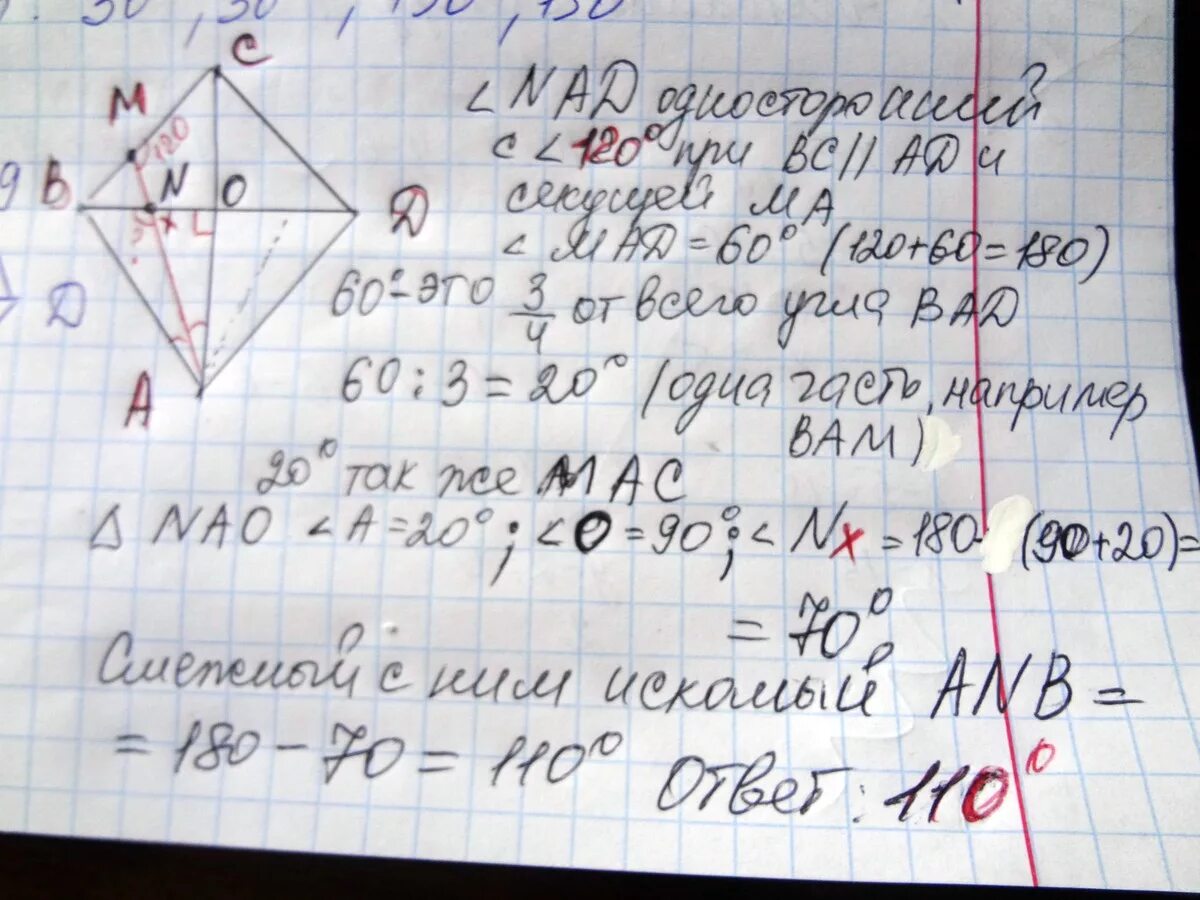 30°, 30°, 150, 150
C
M
120
B
N
O
D
x
?
D
A
< NAD односторонний
с < 120° при BC || AD и
секущей MA
< MAD = 60° (120+60=180)
60° - это 3/4 от всего угла BAD
60 : 3 = 20° (одна часть, например
BAM)
20° так же MAC
Δ NAO < A = 20° ; < O = 90° ; < Nx = 180 - (90+20) =
= 70°
Смежный с ним искомый ANB =
= 180 - 70 = 110°
Ответ: 110°